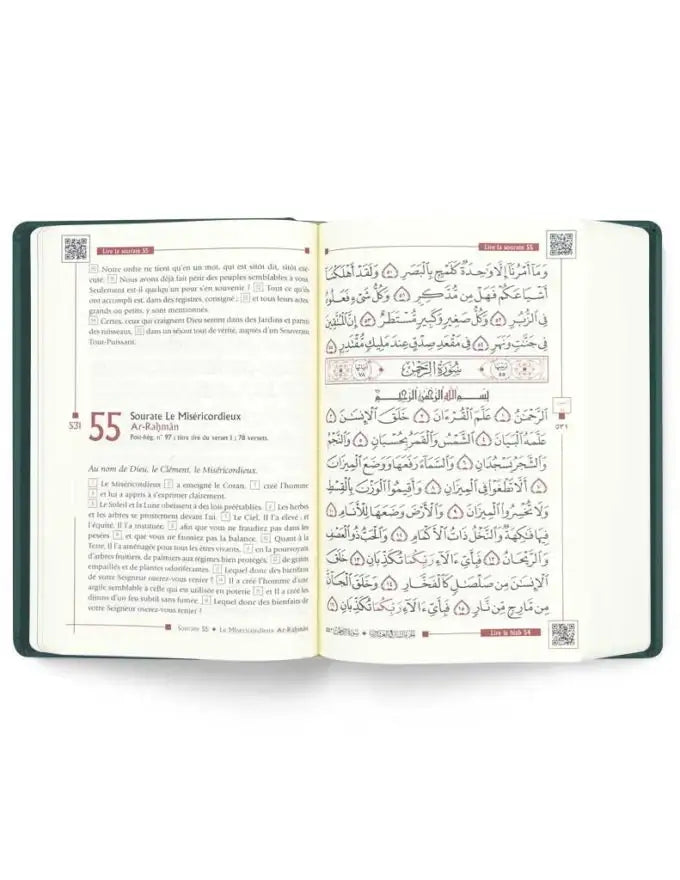 Lire la sourate 55
50 Notre ordre ne tient qu'en un mot, qui est sitôt dit, sitôt exé-
cuté. 51 Nous avons déjà fait périr des peuples semblables à vous.
Seulement est-il quelqu'un pour s'en souvenir ? 52 Tout ce qu'ils
ont accompli est, dans des registres, consigné ; 53 et tous leurs actes,
grands ou petits, y sont mentionnés.
54 Certes, ceux qui craignent Dieu seront dans des Jardins et parmi
des ruisseaux, 55 dans un séjour tout de vérité, auprès d'un Souverain
Tout-Puissant.
531
55
Sourate Le Miséricordieux
Ar-Raḥmân
Post-hég. n° 97 ; titre tiré du verset 1 ; 78 versets.
Au nom de Dieu, le Clément, le Miséricordieux.
1 Le Miséricordieux 2 a enseigné le Coran, 3 créé l'homme
4 et lui a appris à s'exprimer clairement.
5 Le Soleil et la Lune obéissent à des lois préétablies. 6 Les herbes
et les arbres se prosternent devant Lui. 7 Le Ciel, Il l'a élevé ; et
l'équité, Il l'a instituée, 8 afin que vous ne fraudiez pas dans les
pesées 9 et que vous ne faussiez pas la balance. 10 Quant à la
Terre, Il l'a aménagée pour tous les êtres vivants, 11 en la pourvoyant
d'arbres fruitiers, de palmiers aux régimes bien protégés, 12 de grains
empaillés et de plantes odoriférantes. 13 Lequel donc des bienfaits
de votre Seigneur oserez-vous renier ? 14 Il a créé l'homme d'une
argile semblable à celle qui est utilisée en poterie 15 et Il a créé les
djinns d'un feu subtil sans fumée. 16 Lequel donc des bienfaits de
votre Seigneur oserez-vous renier ?
Sourate 55 ◆ Le Miséricordieux Ar-Raḥmân
Lire la sourate 55
وَمَآ أَمْرُنَآ إِلَّا وَٰحِدَةٌ كَلَمْحٍۭ بِٱلْبَصَرِ ٥٠ وَلَقَدْ أَهْلَكْنَآ
أَشْيَاعَكُمْ فَهَلْ مِن مُّدَّكِرٍ ٥١ وَكُلُّ شَىْءٍ فَعَلُوهُ
فِى ٱلزُّبُرِ ٥٢ وَكُلُّ صَغِيرٍ وَكَبِيرٍ مُّسْتَطَرٌ ٥٣ إِنَّ ٱلْمُتَّقِينَ
فِى جَنَّٰتٍ وَنَهَرٍ ٥٤ فِى مَقْعَدِ صِدْقٍ عِندَ مَلِيكٍ مُّقْتَدِرٍۭ ٥٥
سُورَةُ الرَّحْمٰن
بِسْمِ ٱللَّهِ ٱلرَّحْمَٰنِ ٱلرَّحِيمِ
ٱلرَّحْمَٰنُ ١ عَلَّمَ ٱلْقُرْءَانَ ٢ خَلَقَ ٱلْإِنسَٰنَ ٣
عَلَّمَهُ ٱلْبَيَانَ ٤ ٱلشَّمْسُ وَٱلْقَمَرُ بِحُسْبَانٍ ٥ وَٱلنَّجْمُ
وَٱلشَّجَرُ يَسْجُدَانِ ٦ وَٱلسَّمَآءَ رَفَعَهَا وَوَضَعَ ٱلْمِيزَانَ
٧ أَلَّا تَطْغَوْا۟ فِى ٱلْمِيزَانِ ٨ وَأَقِيمُوا۟ ٱلْوَزْنَ بِٱلْقِسْطِ
وَلَا تُخْسِرُوا۟ ٱلْمِيزَانَ ٩ وَٱلْأَرْضَ وَضَعَهَا لِلْأَنَامِ ١٠
فِيهَا فَٰكِهَةٌ وَٱلنَّخْلُ ذَاتُ ٱلْأَكْمَامِ ١١ وَٱلْحَبُّ ذُو ٱلْعَصْفِ
وَٱلرَّيْحَانُ ١٢ فَبِأَىِّ ءَالَآءِ رَبِّكُمَا تُكَذِّبَانِ ١٣ خَلَقَ
ٱلْإِنسَٰنَ مِن صَلْصَٰلٍ كَٱلْفَخَّارِ ١٤ وَخَلَقَ ٱلْجَآنَّ
مِن مَّارِجٍ مِّن نَّارٍ ١٥ فَبِأَىِّ ءَالَآءِ رَبِّكُمَا تُكَذِّبَانِ ١٦
٥٣١
Lire la hizb 54